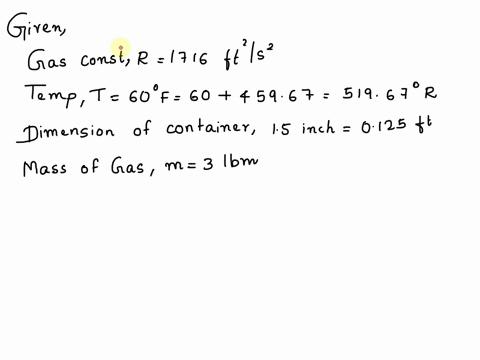 Given,
Gas const, R = 1716 ft²/s²
Temp, T = 60°F = 60 + 459.67 = 519.67°R
Dimension of container, 1.5 inch = 0.125 ft
Mass of Gas, m = 3 lbm